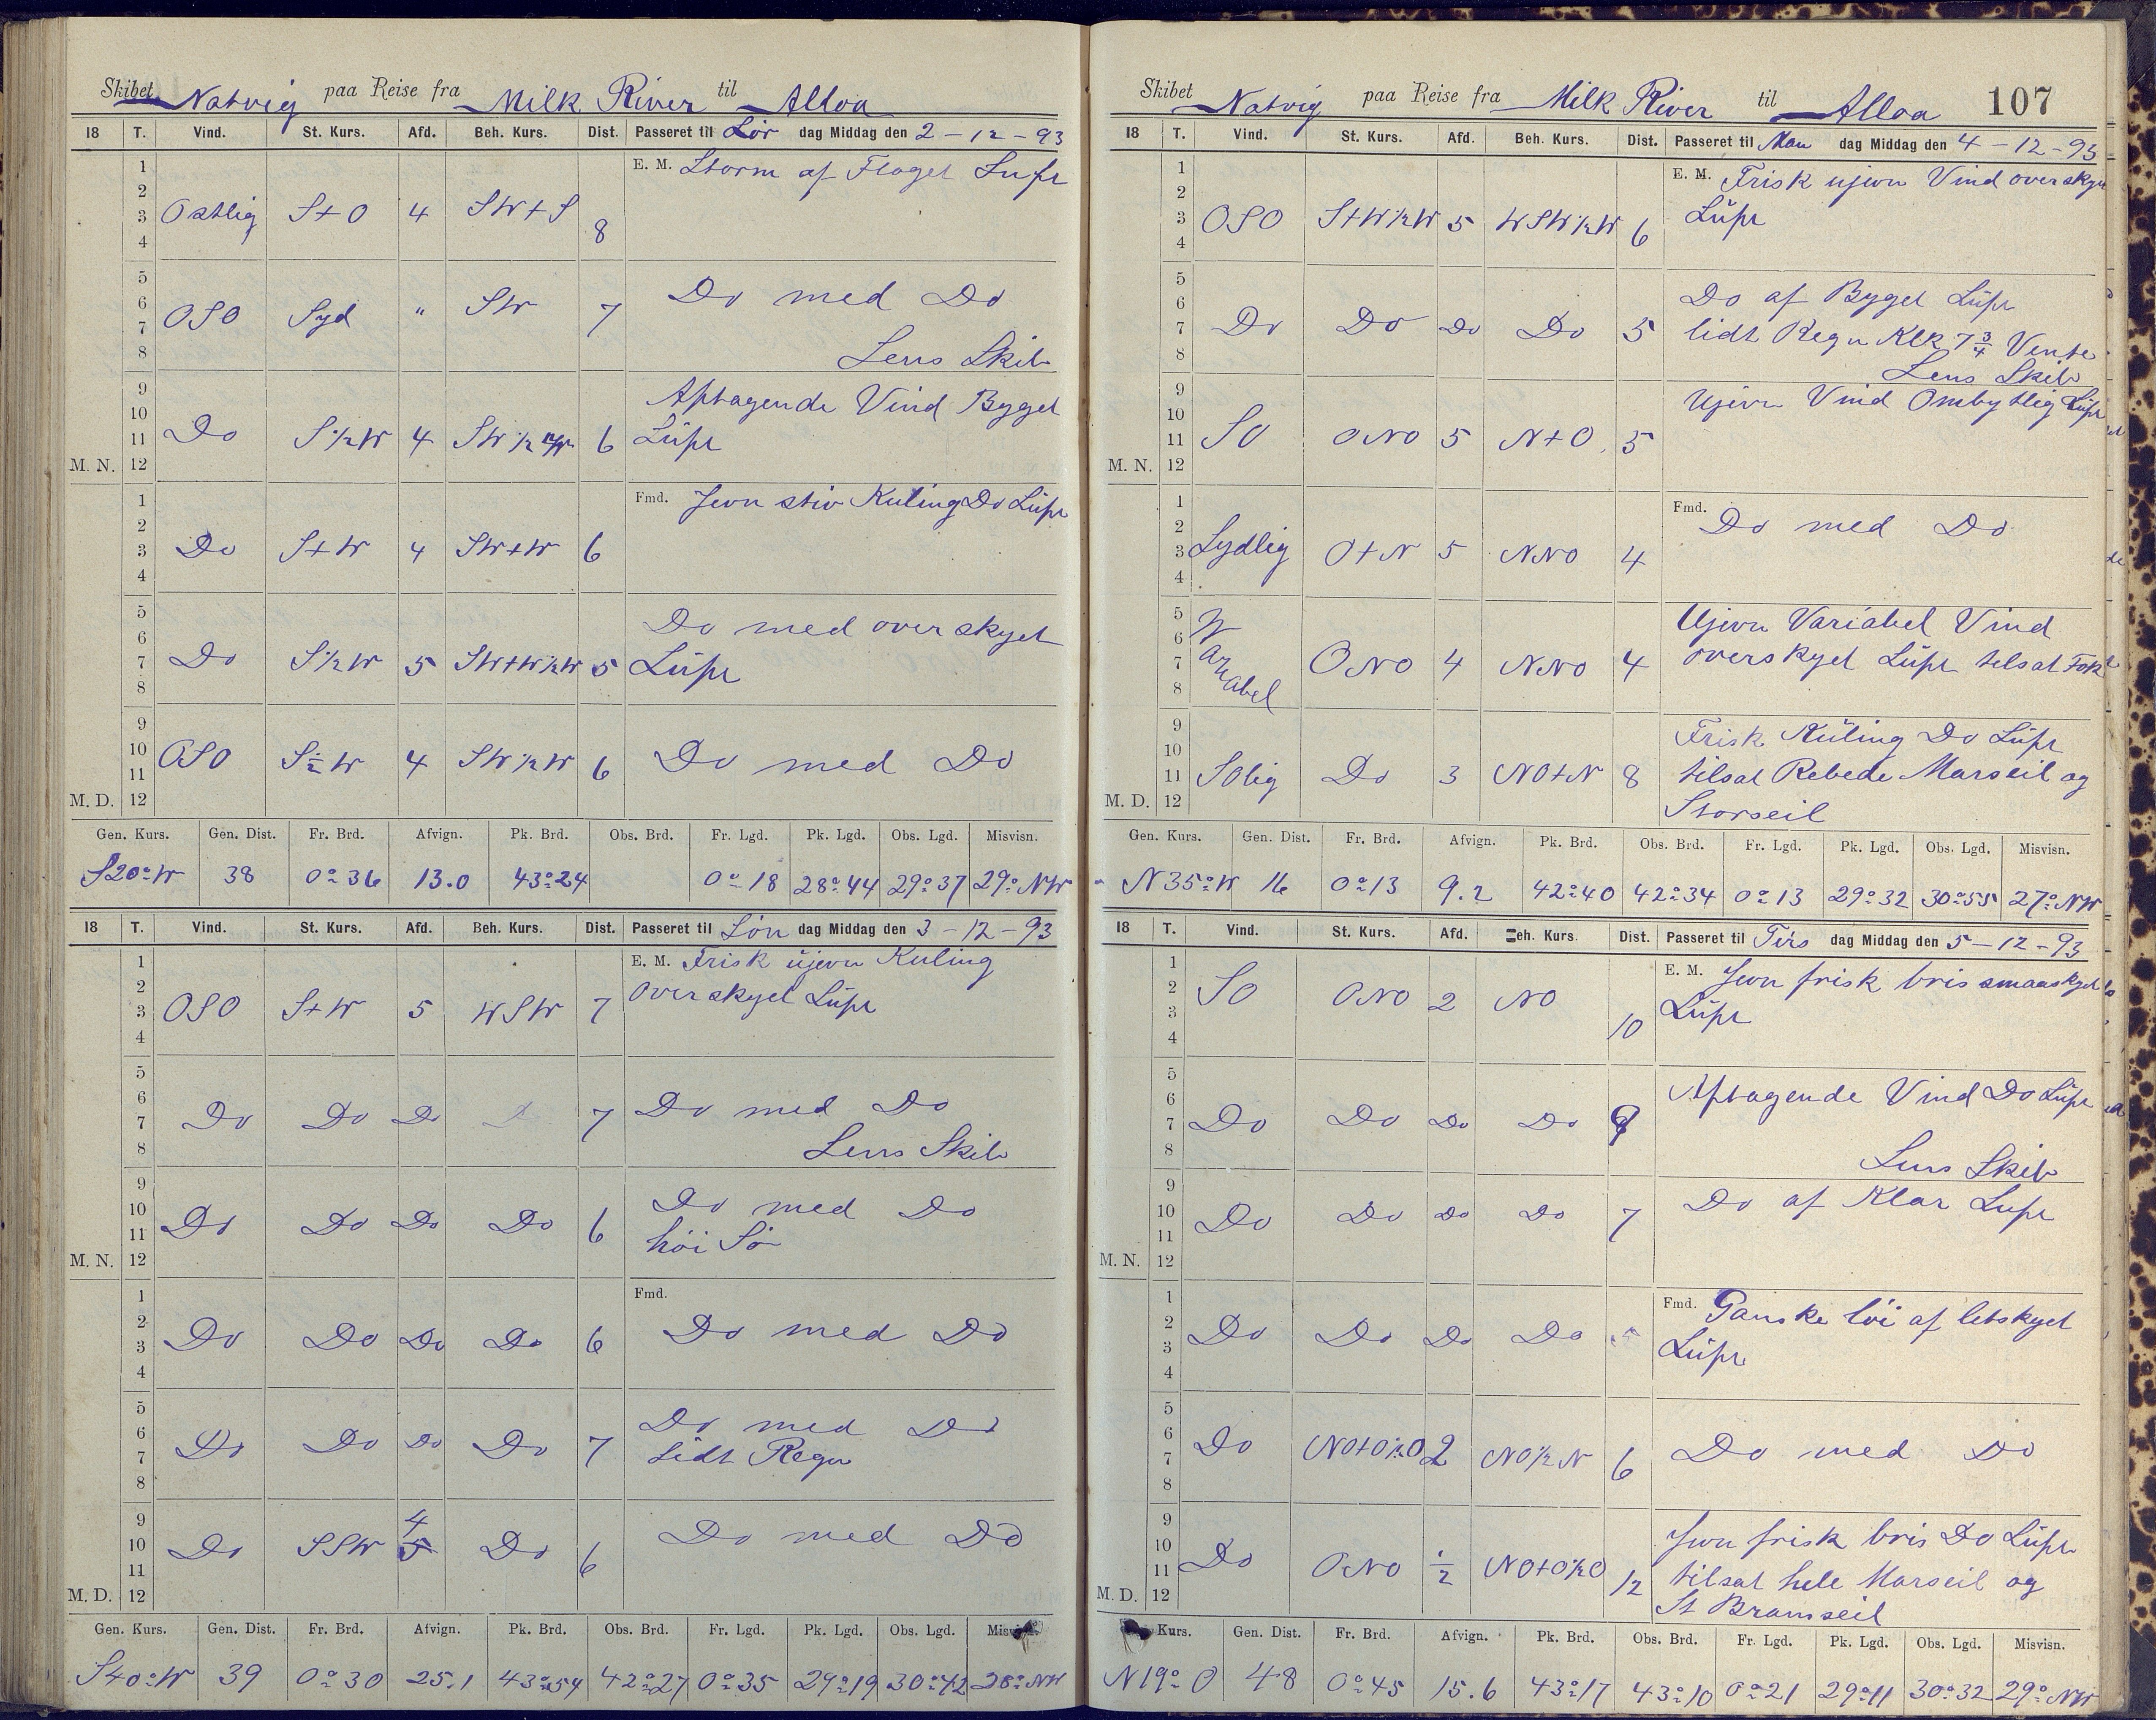 Skibet Natvig paa Reise fra Milk River til Alloa
18 T. Vind. St. Kurs. Afd. Beh. Kurs. Dist. Passeret til Lör dag Middag den 2-12-93
1 2 3 4 Ostlig S+O 4 SW+S 8 E. M. Storm af Floget Luft
5 6 7 8 OSO Syd " SW 7 Do med Do
Lens Skib
9 10 11 12 M. N. Do S½W 4 SW½W 6 Aftagende Vind Byget
Lüft
1 2 3 4 Do S+W 4 SW+W 6 Fmd. Jevn stiv Kuling Do Lüft
5 6 7 8 Do S½W 5 SW+W½W 5 Do med overskyet
Lüft
9 10 11 12 M. D. OSO S½W 4 SW½W 6 Do med Do
Gen. Kurs. Gen. Dist. Fr. Brd. Afvign. Pk. Brd. Obs. Brd. Fr. Lgd. Pk. Lgd. Obs. Lgd. Misvisn.
S20°W 38 0°36 13.0 43°24 0°18 28°44 29°37 29°NW
18 T. Vind. St. Kurs. Afd. Beh. Kurs. Dist. Passeret til Sön dag Middag den 3-12-93
1 2 3 4 OSO S+W 5 WSW 7 E. M. Frisk üjevn Kuling
Overskyet Lüft
5 6 7 8 Do Do Do 7 Do med Do
Lens Skib
9 10 11 12 M. N. Do Do Do Do 6 Do med Do
höi Sö
1 2 3 4 Do Do Do Do 6 Fmd. Do med Do
5 6 7 8 Do Do Do Do 7 Do med Do
Lidt Regn
9 10 11 12 M. D. Do SSW 4 5 Do 6 Do med Do
Gen. Kurs. Gen. Dist. Fr. Brd. Afvign. Pk. Brd. Obs. Brd. Fr. Lgd. Pk. Lgd. Obs. Lgd.
S40°W 39 0°30 25.1 43°54 42°27 0°35 29°19 30°42 28°NW
Skibet Natvig paa Reise fra Milk River til Alloa 107
18 T. Vind. St. Kurs. Afd. Beh. Kurs. Dist. Passeret til Man dag Middag den 4-12-93
1 2 3 4 OSO S+W½W 5 WSW½W 6 E. M. Frisk ujevn Vind
Lüft
5 6 7 8 Do Do Do Do 5 Do af Byget Lüft
lidt Regn Klk 7¾ Vente
Lens Skib
9 10 11 12 M. N. SO ONO 5 N+O 5 Ujevn Vind Ombytlig Lüft
1 2 3 4 Sydlig O+N 5 NNO 4 Fmd. Do med Do
5 6 7 8 Variabel ONO 4 NNO 4 Ujevn Variabel Vind
overskyet Lüft tilsat Fok
9 10 11 12 M. D. SOlig Do 3 NO+N 8 Frisk Küling Do Lüft
tilsat Rebede Marseil og
Storseil
Gen. Kurs. Gen. Dist. Fr. Brd. Afvign. Pk. Brd. Obs. Brd. Fr. Lgd. Pk. Lgd. Obs. Lgd. Misvisn.
N35°W 16 0°13 9.2 42°40 42°34 0°13 29°32 30°55 27°NW
18 T. Vind. St. Kurs. Afd. Beh. Kurs. Dist. Passeret til Tirs dag Middag den 5-12-93
1 2 3 4 SO ONO 2 NO 10 E. M. Jevn frisk bris smaaskyet
Lüft
5 6 7 8 Do Do Do Do 9 Aftagende Vind Do Lüft
Lens Skib
9 10 11 12 M. N. Do Do Do Do 7 Do af Klar Luft
1 2 3 4 Do Do Do Do Fmd. Ganske löi af letskyet
Lüft
5 6 7 8 Do NO+O½O 2 NO½N 6 Do med Do
9 10 11 12 M. D. Do ONO ½ NO+O½O 12 Jevn frisk bris Do Lüft
tilsat hele Marseil og
St Bramseil
Kurs. Gen. Dist. Fr. Brd. Afvign. Pk. Brd. Obs. Brd. Fr. Lgd. Pk. Lgd. Obs. Lgd. Misvisn.
N19°O 48 0°45 15.6 43°17 43°10 0°21 29°11 30°32 29°NW